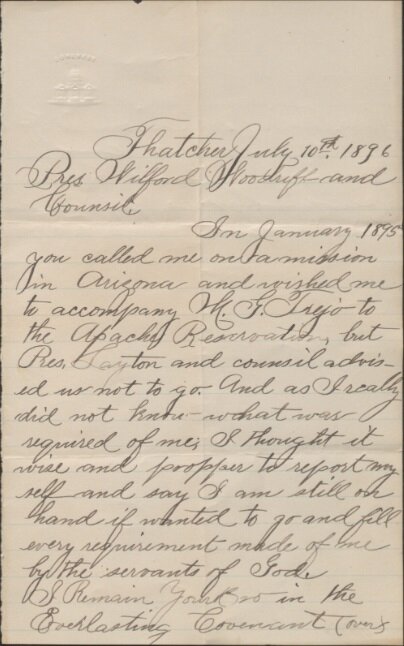 CONGRESS
Thatcher July 10th. 1896
Pres Wilford Woodruff and
Counsil,
In January 1895
you called me on a mission
in Arizona and wished me
to accompany M. G. Trejo to
the Apache Reservation, but
Pres, Layton and counsil advis-
ed us not to go. And as I really
did not know what was
required of me; I thought it
wise and poopper to report my
self and say I am still on
hand if wanted to go and fill
every requirement made of me
by the servants of God.
I Remain Your Bro in the
Everlasting Covenant (over)